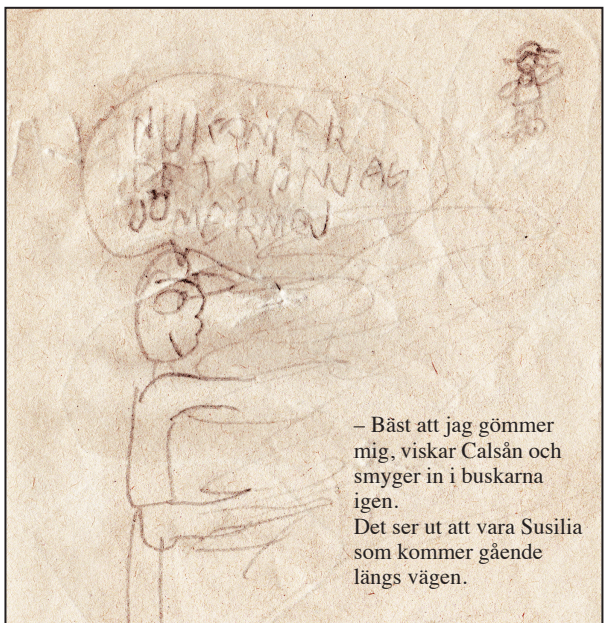 NU KOMER
DET NÅN JAG
– Bäst att jag gömmer
mig, viskar Calsån och
smyger in i buskarna
igen.
Det ser ut att vara Susilia
som kommer gående
längs vägen.